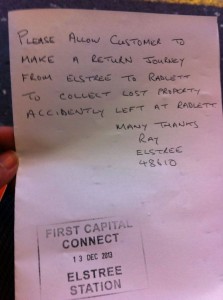 PLEASE ALLOW CUSTOMER TO
MAKE A RETURN JOURNEY
FROM ELSTREE TO RADLETT
TO COLLECT LOST PROPERTY
ACCIDENTLY LEFT AT RADLETT
MANY THANKS
RAY
ELSTREE
48610
FIRST CAPITAL
CONNECT
13 DEC 2013
ELSTREE
STATION